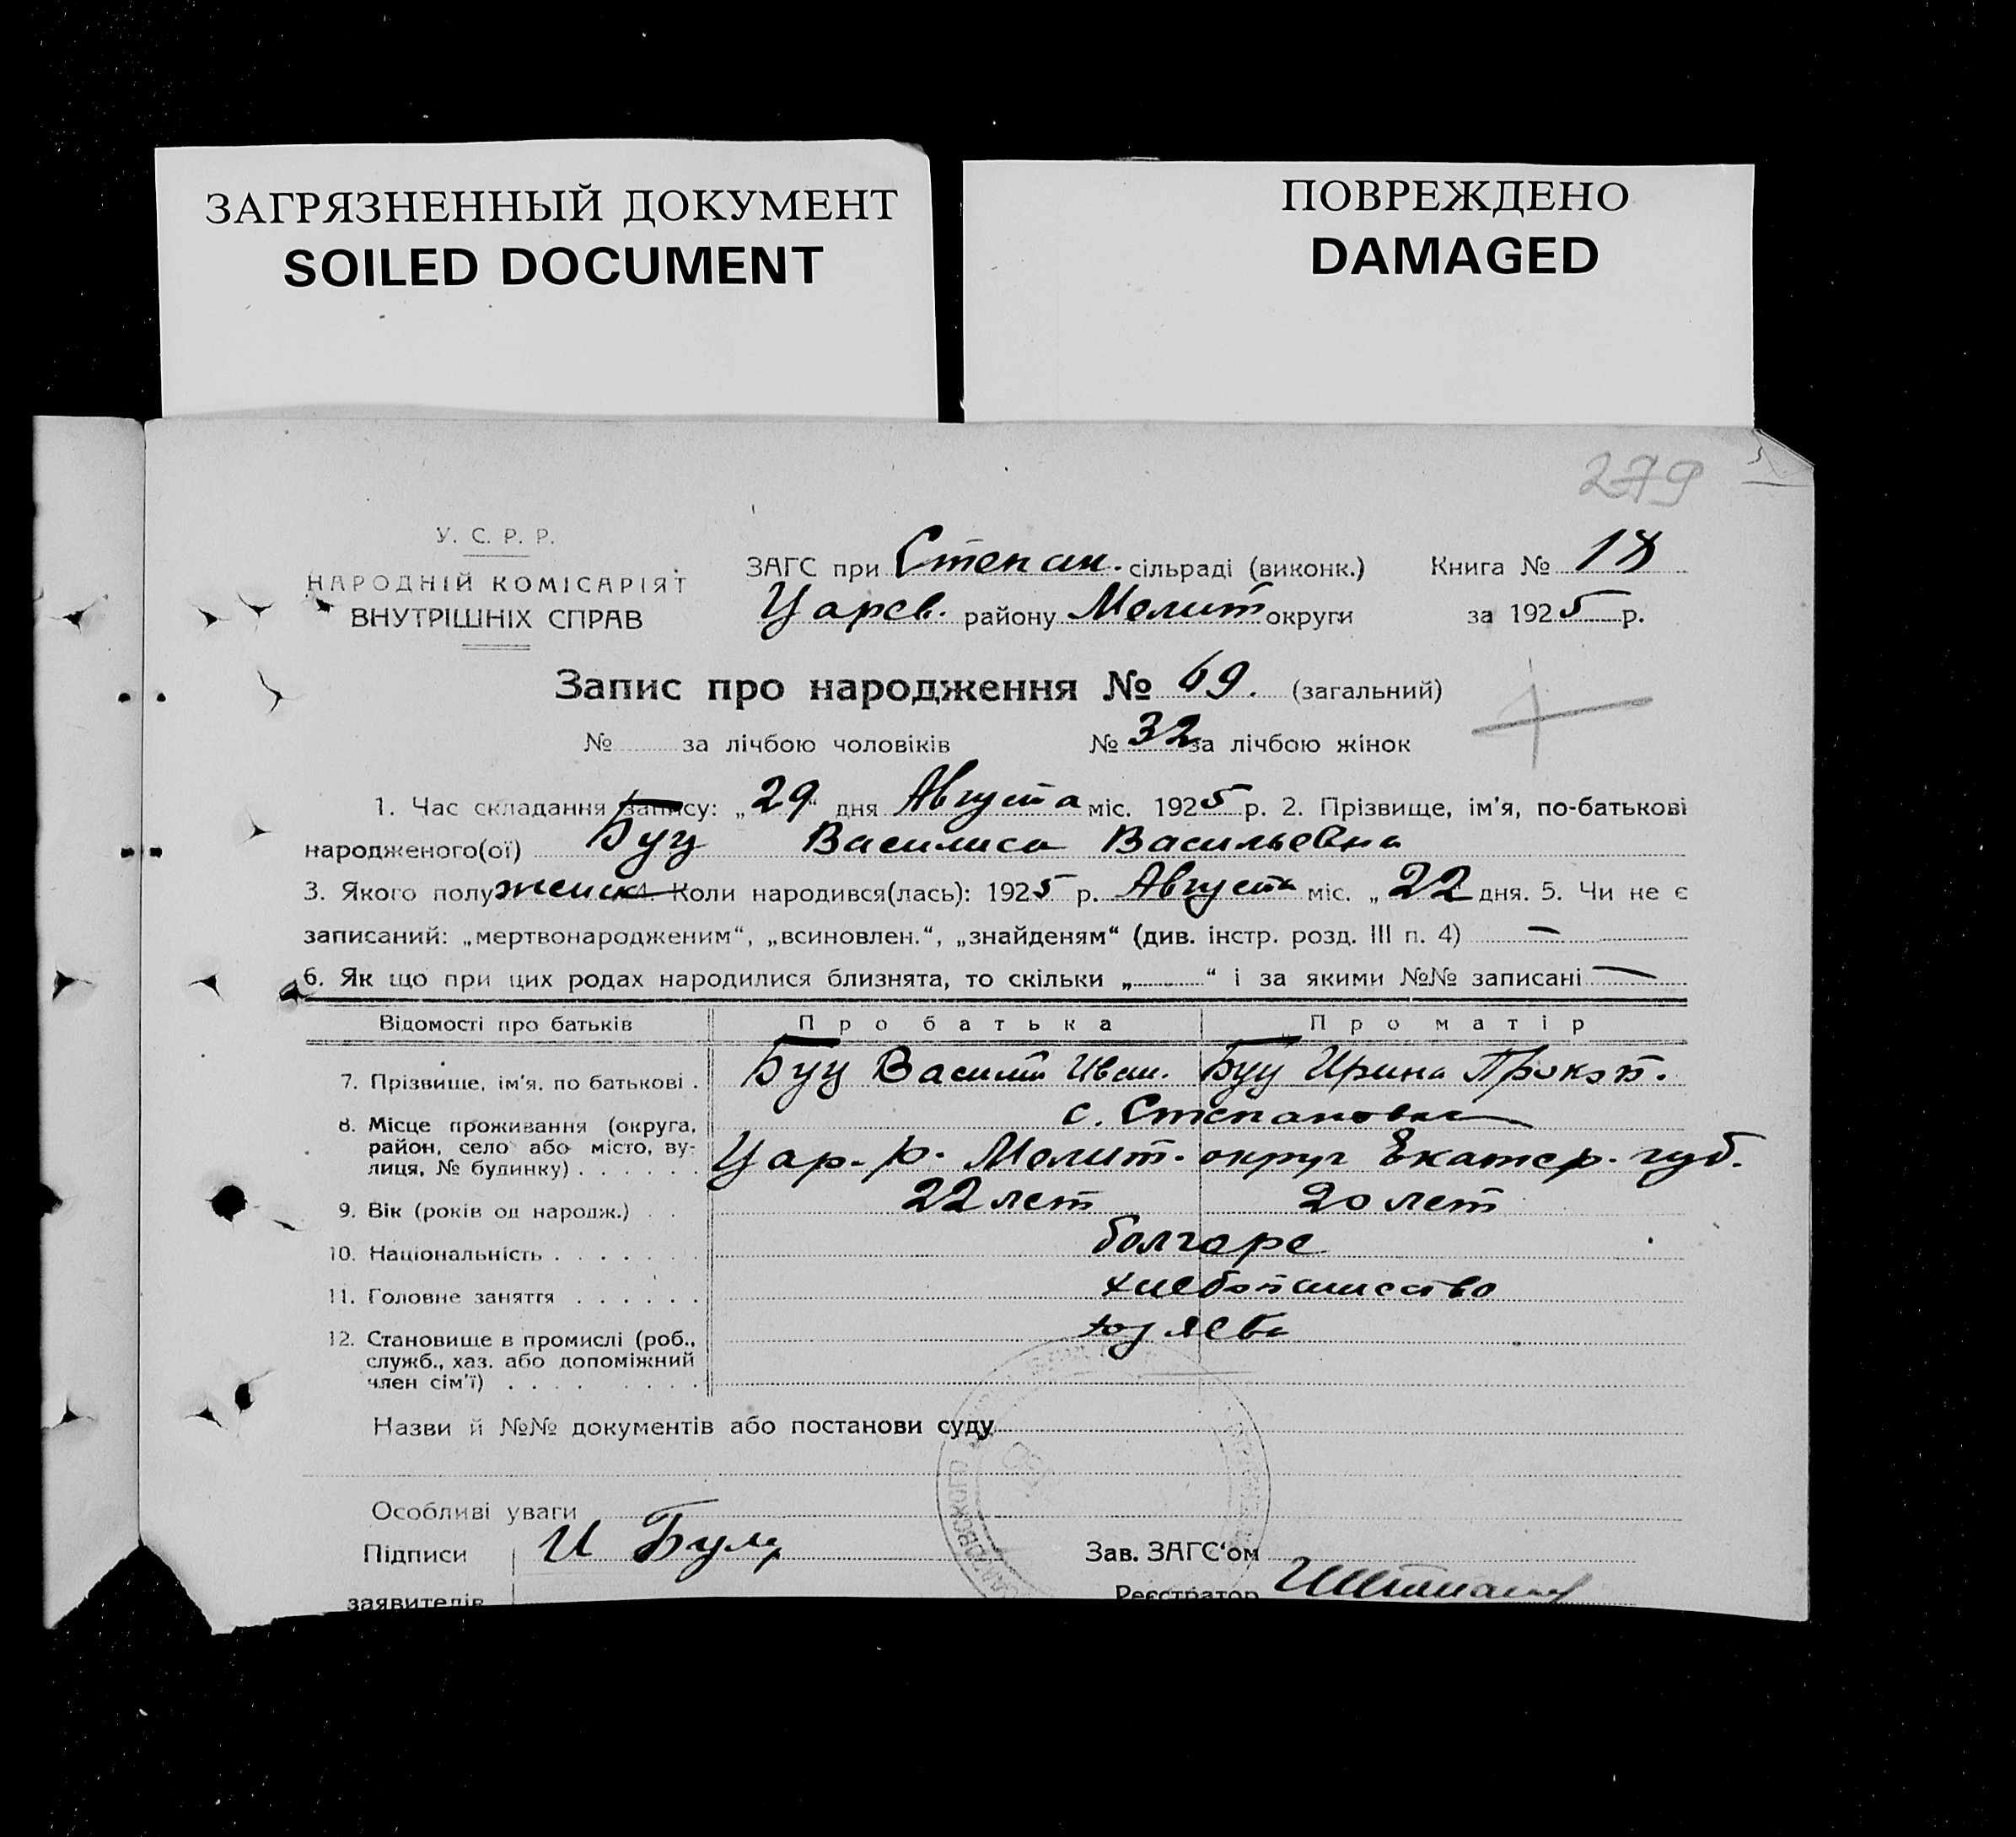 ЗАГРЯЗНЕННЫЙ ДОКУМЕНТ
SOILED DOCUMENT
ПОВРЕЖДЕНО
DAMAGED
279
У. С. Р. Р.
НАРОДНІЙ КОМІСАРІЯТ
ВНУТРІШНІХ СПРАВ
ЗАГС при Степан. сільраді (виконк.)
Царев. району Мелит округи
Книга № 18
за 1925 р.
Запис про народження № 69. (загальний)
№ за лічбою чоловіків № 32 за лічбою жінок
1. Час складання запису: „29“ дня Августа міс. 1925 р. 2. Прізвище, ім'я, по-батькові
народженого(ої) Буц Василиса Васильевна
3. Якого полу женск 4. Коли народився(лась): 1925 р. Августа міс. „22 дня. 5. Чи не є
записаний: „мертвонародженим“, „всиновлен.“, „знайденям“ (див. інстр. розд. III п. 4) —
6. Як що при цих родах народилися близнята, то скільки „ “ і за якими №№ записані —
Відомості про батьків Про батька Про матір
7. Прізвище, ім'я, по батькові . Буц Василий Иван. Буц Ирина Прокоп.
8. Місце проживання (округа, с. Степановка
район, село або місто, ву-
лиця, № будинку) . . . . . . Цар. р. Мелит. округ Екатер. губ.
9. Вік (років од народж.) . . 22 лет 20 лет
10. Національність . . . . . . . болгаре
11. Головне заняття . . . . . . хлебопашество
12. Становище в промислі (роб.,
служб., хаз. або допоміжний
член сім'ї) . . . . . . . .
Назви й №№ документів або постанови суду
Особливі уваги
Підписи И Буц
заявителів
Зав. ЗАГС'ом
Реєстратор